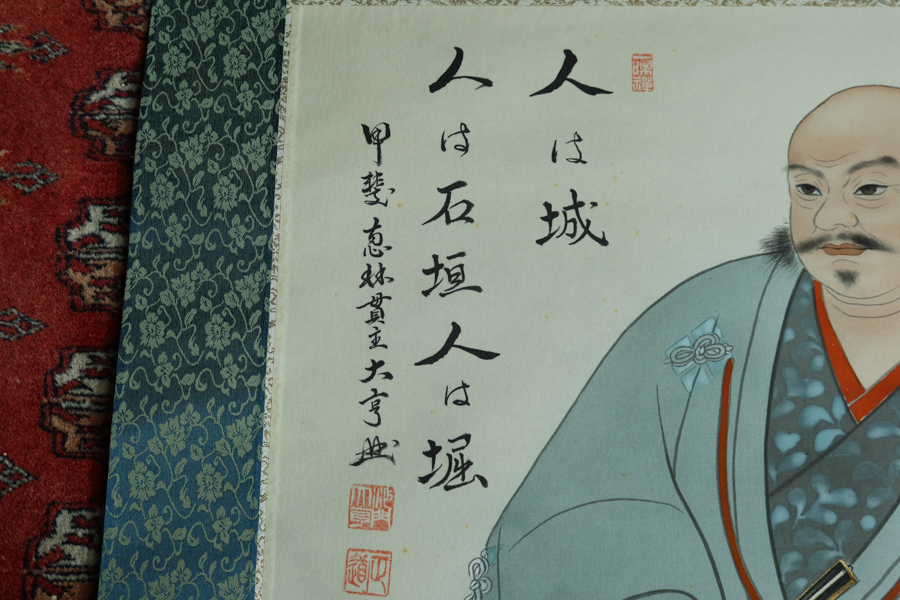 人は城
人は石垣人は堀
甲斐恵林貫主大亨